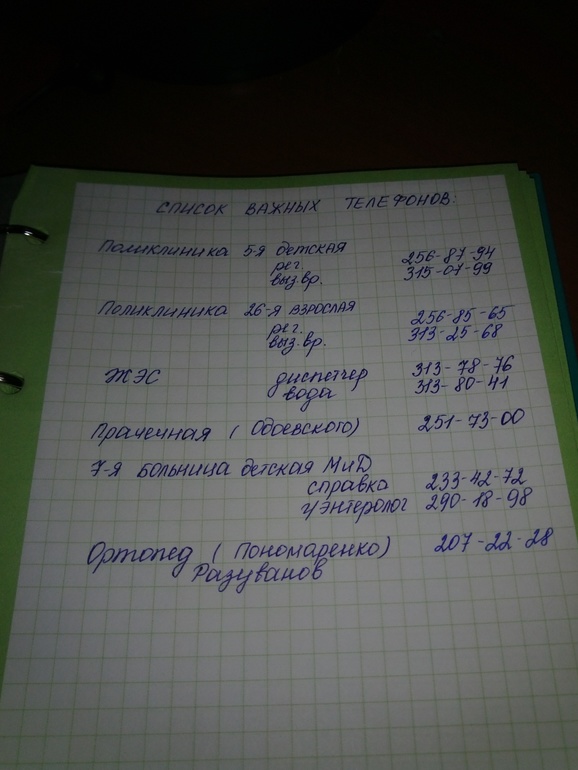 СПИСОК ВАЖНЫХ ТЕЛЕФОНОВ:
Поликлиника 5-я детская
рег. 256-87-94
выз.вр. 315-07-99
Поликлиника 26-я взрослая
рег. 256-85-65
выз.вр. 313-25-68
ЖЭС диспетчер 313-78-76
вода 313-80-41
Прачечная (Одоевского) 251-73-00
7-я больница детская МиД
справка 233-42-72
г/энтеролог 290-18-98
Ортопед (Пономаренко) 207-22-28
Разуванов